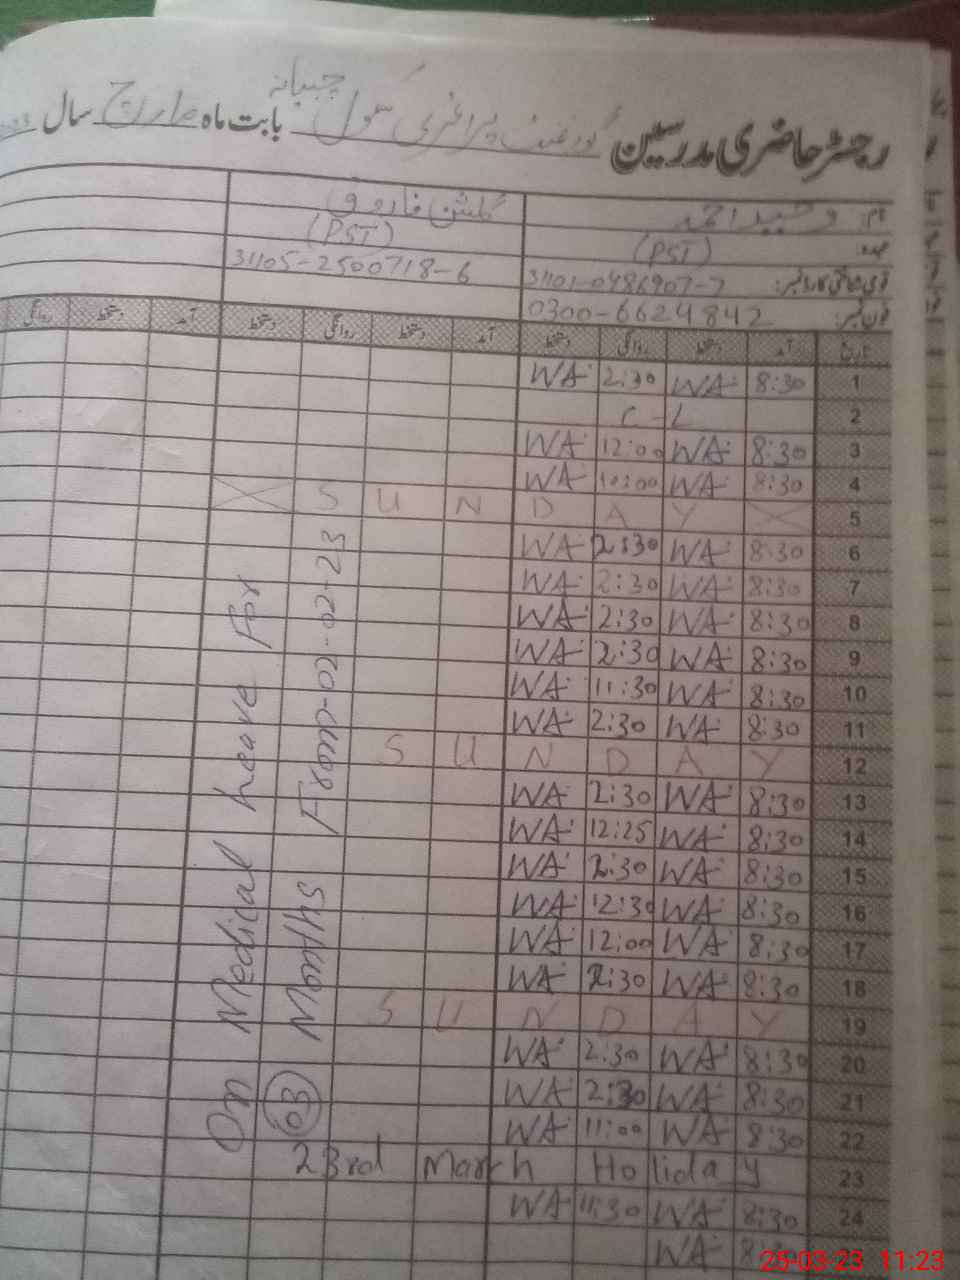 رجسٹر حاضری مدرسین گورنمنٹ پرائمری سکول چبیانہ بابت ماہ مارچ سال
نام: وحید احمد گلشن فاروق
عہدہ: (PST) (PST)
قومی شناختی کارڈ نمبر: 31101-0486907-7 31105-2500718-6
فون نمبر: 0300-6624842
تاریخ آمد دستخط روانگی دستخط آمد دستخط روانگی دستخط آمد دستخط روانگی
1 8:30 WA 2:30 WA
2 C-L
3 8:30 WA 12:00 WA
4 8:30 WA 10:00 WA
5 SUNDAY
6 8:30 WA 2:30 WA
7 8:30 WA 2:30 WA
8 8:30 WA 2:30 WA
9 8:30 WA 2:30 WA
10 8:30 WA 11:30 WA
11 8:30 WA 2:30 WA
12 SUNDAY
13 8:30 WA 2:30 WA
14 8:30 WA 12:25 WA
15 8:30 WA 2:30 WA
16 8:30 WA 12:30 WA
17 8:30 WA 12:00 WA
18 8:30 WA 2:30 WA
19 SUNDAY
20 8:30 WA 2:30 WA
21 8:30 WA 2:30 WA
22 8:30 WA 11:00 WA
23 23rd March Holiday
24 8:30 WA 11:30 WA
8:30 WA
On Medical heave For
03 Months From-02-02-23
25-03-23 11:23